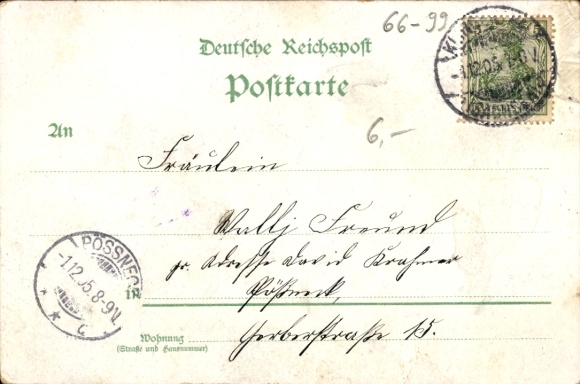 66-99
Deutsche Reichspost
Postkarte
6,-
An
Fräulein
Wally Freund
pr. Adresse David Krahmer
in Pößneck,
Wohnung Gerberstraße 15.
(Straße und Hausnummer)
PÖSSNECK
1.12.05.8-9V.
c
1.12.05.